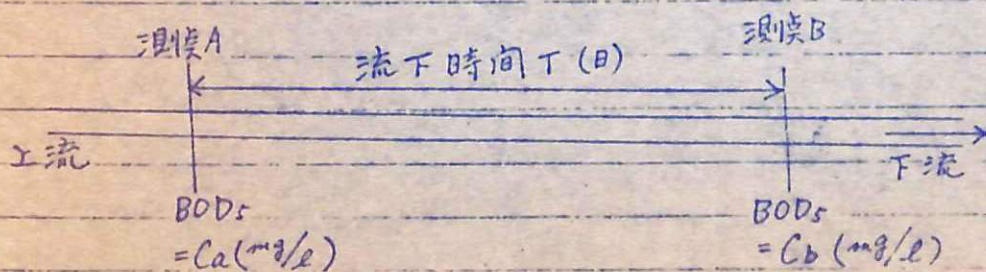 測点A
測点B
流下時間T(日)
上流
下流
BOD₅
=Ca(mg/l)
BOD₅
=Cb(mg/l)